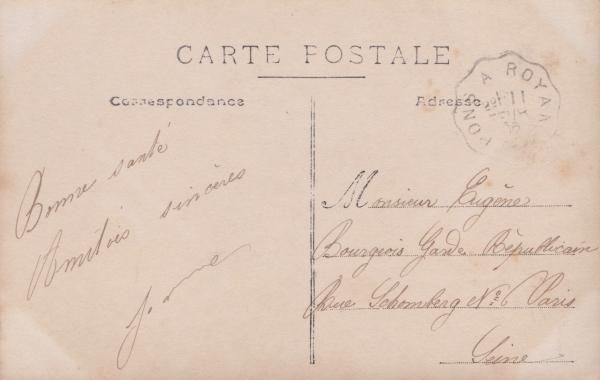 CARTE POSTALE
Correspondance
Adresse
PONS A ROYAN
Bonne santé
Amitiés sincères
Monsieur Eugène
Bourgeois Garde Républicain
Rue Schomberg No 6 Paris
Seine